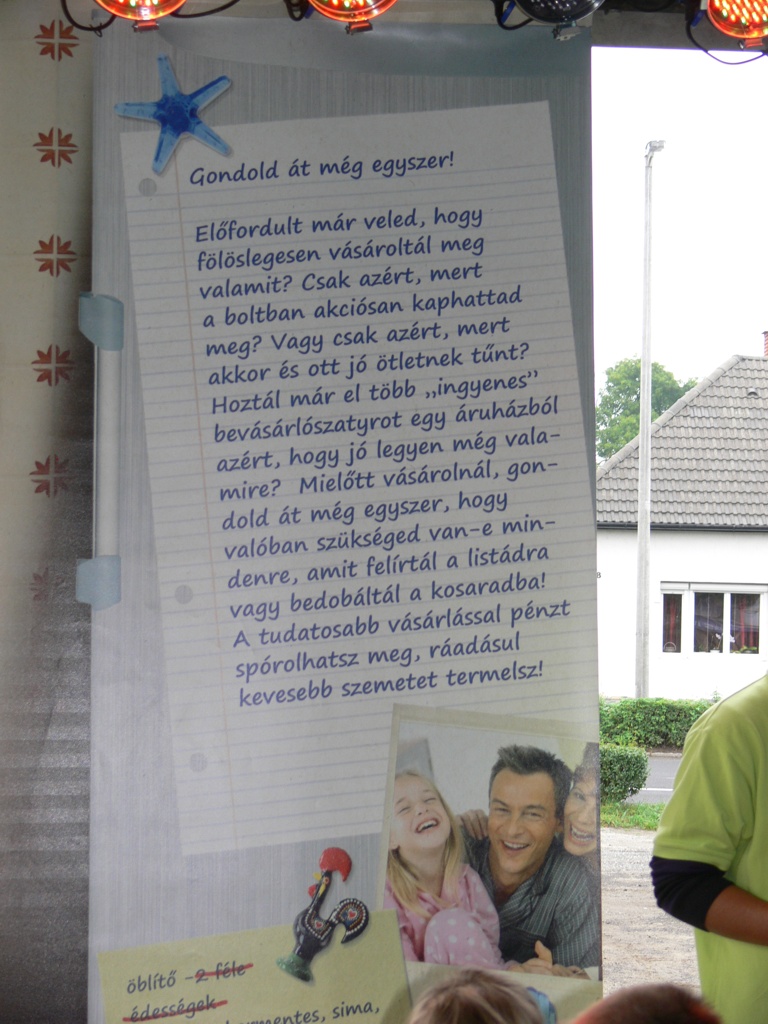 Gondold át még egyszer!
Előfordult már veled, hogy
fölöslegesen vásároltál meg
valamit? Csak azért, mert
a boltban akciósan kaphattad
meg? Vagy csak azért, mert
akkor és ott jó ötletnek tűnt?
Hoztál már el több „ingyenes”
bevásárlószatyrot egy áruházból
azért, hogy jó legyen még vala-
mire? Mielőtt vásárolnál, gon-
dold át még egyszer, hogy
valóban szükséged van-e min-
denre, amit felírtál a listádra
vagy bedobáltál a kosaradba!
A tudatosabb vásárlással pénzt
spórolhatsz meg, ráadásul
kevesebb szemetet termelsz!
öblítő - 2 féle
édességek
sima,